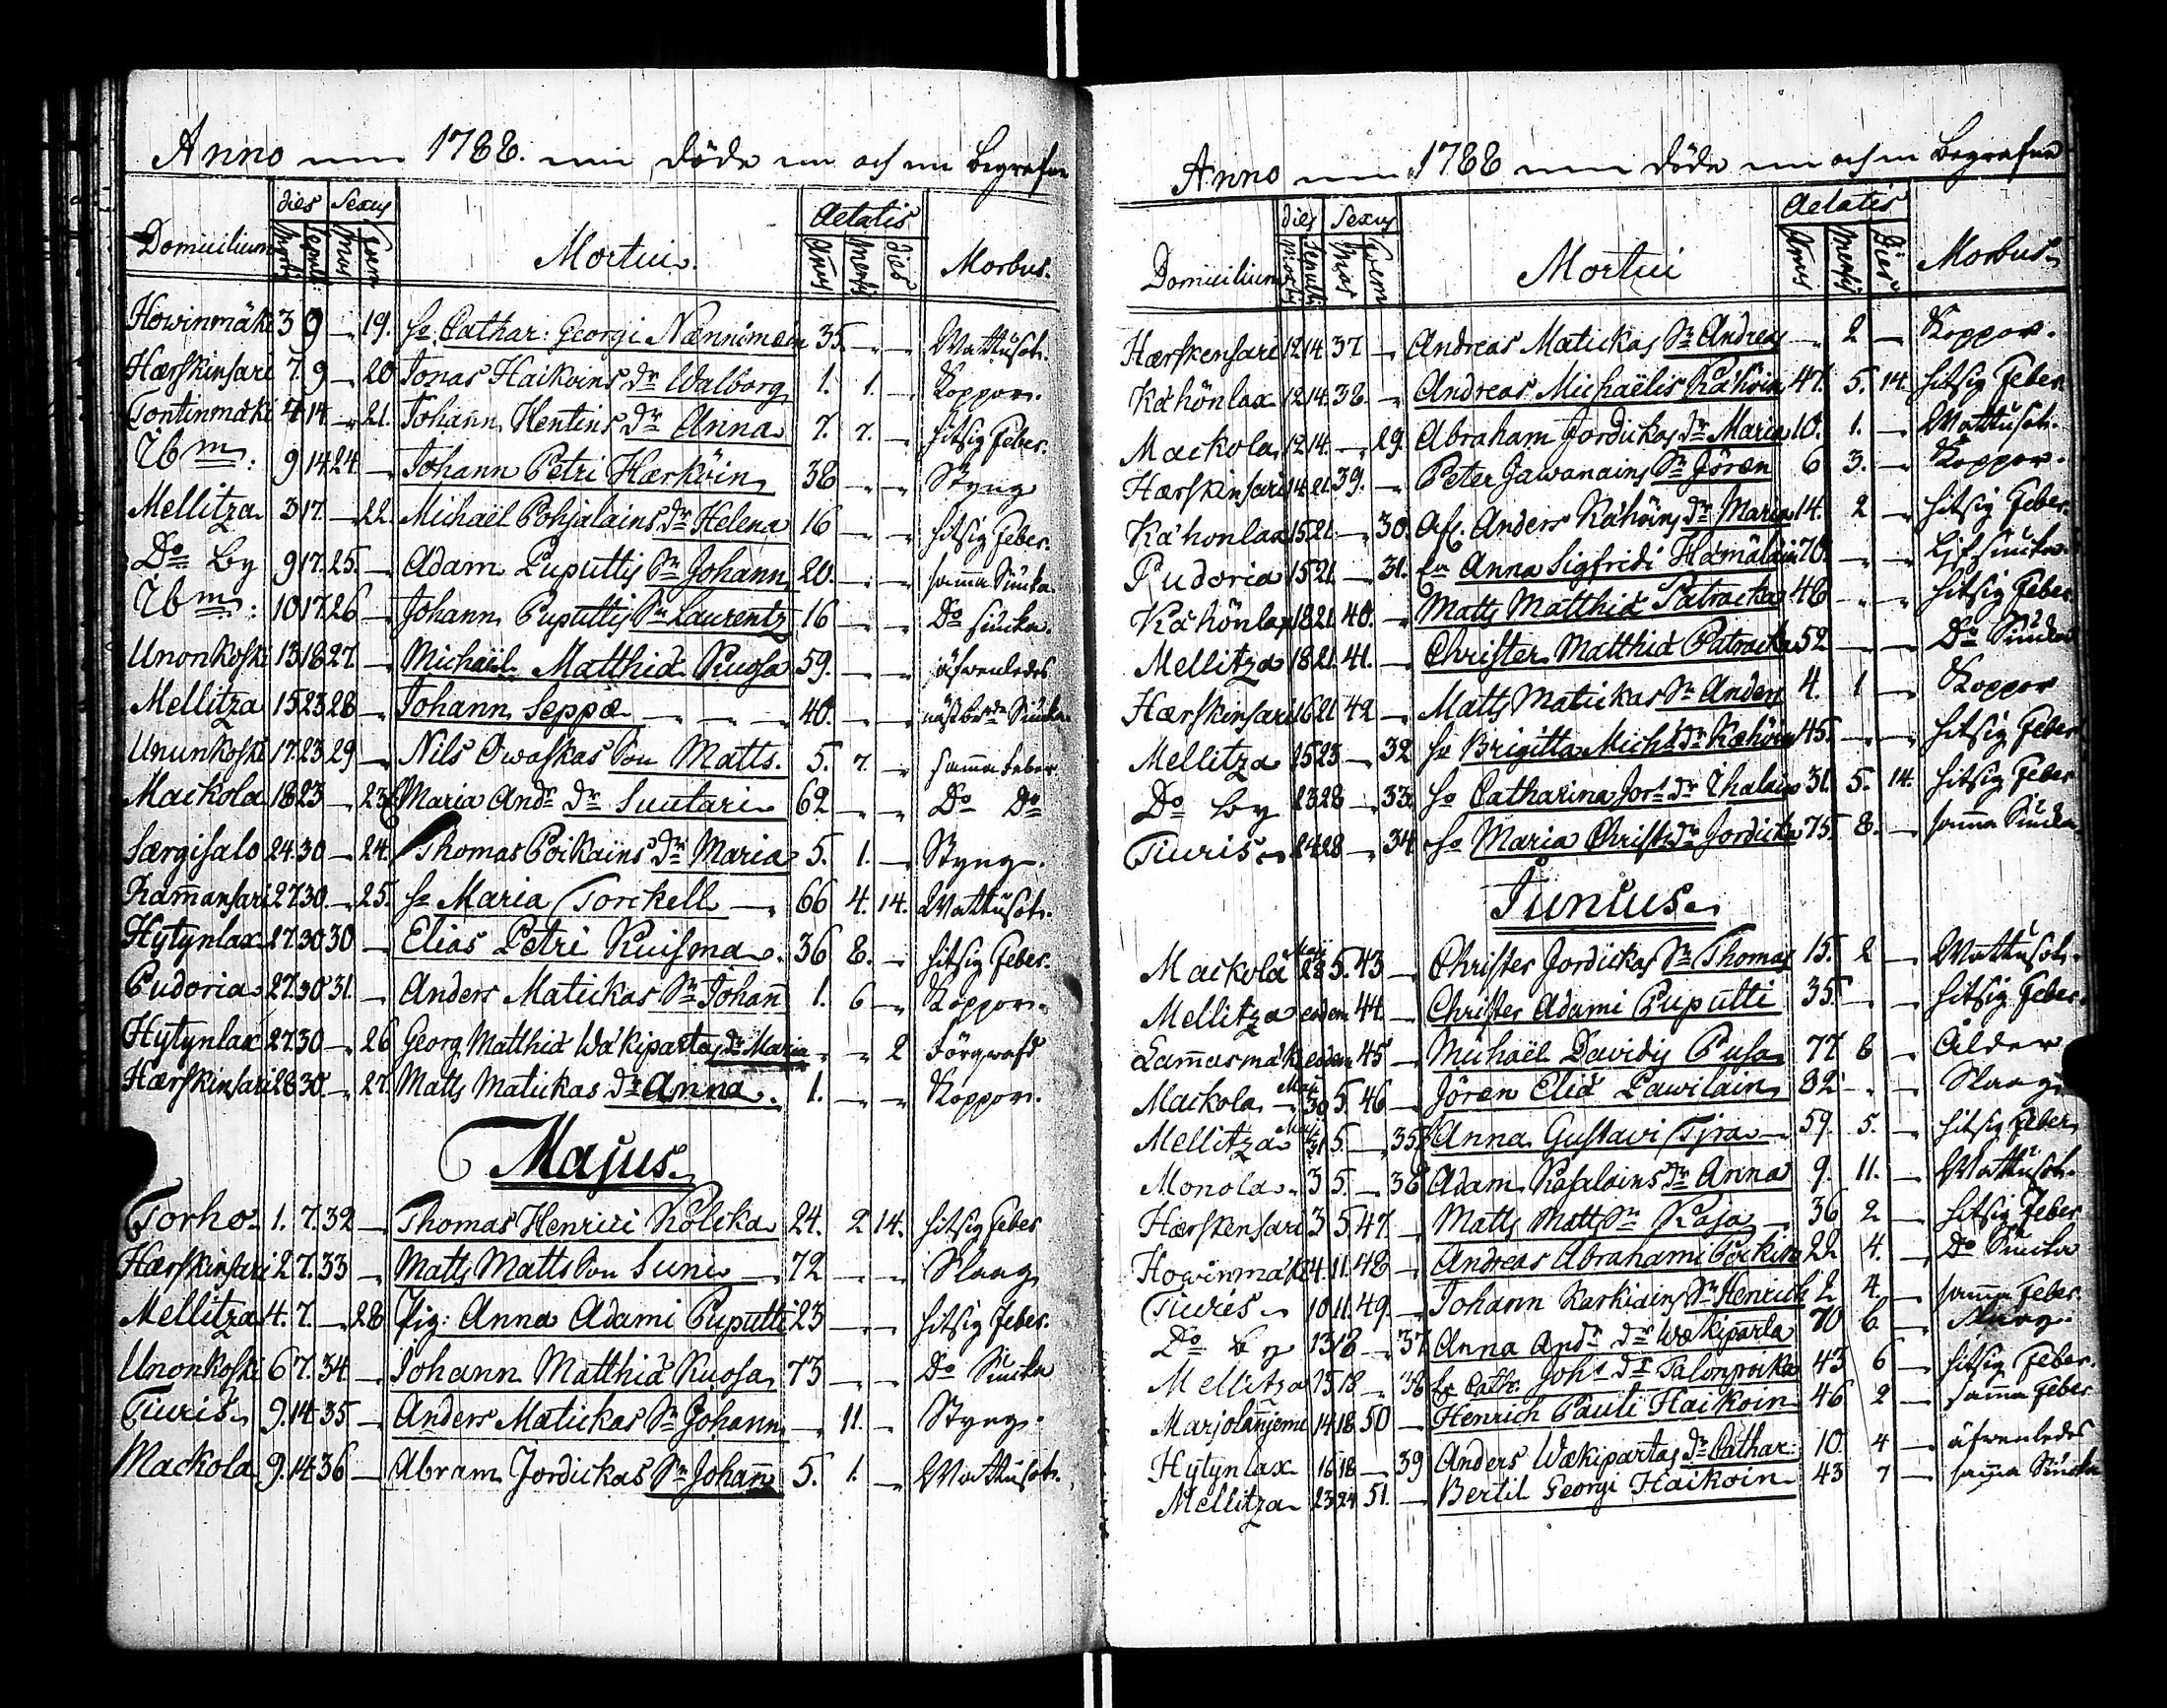 Anno 1788. döde och begrafne
Domicilium dies Sexus Mortui. Aetatis Morbus.
Mortis Sepult: Mas Foem Annus Mensis Dies
Howinmäki 3 9 19. h: Cathar: Georgi Nännimäin 35. Wattusot.
Hærskinsari 7. 9 20 Jonas Haikoins Dr Walborg 1. 1. Koppor.
Tontinmäki 4 14. 21. Johann Hentins Dr Anna 7. 7. hitsig feber.
Ibm: 9 14 24. Johann Petri Härköin 38 Styng
Mellitza 3 17. 22. Michaël Pohjalains Dr Helena 16 hitsig feber.
Do by 9 17. 25. Adam Puputtis Sn Johann 20. samma Siucka.
Ibm: 10 17. 26 Johann Puputtis Sn Laurentz 16 Do siucka.
Unonkoski 13 18 27. Michaël Matthiæ Kuosa 59. äfwenledes
Mellitza 15 23 28 Johann Seppæ 40. näst ber:de Siucka
Ununkoski 17. 23 29 Nils Owaskas Son Matts. 5. 7. samma feber
Mackola 18 23 23 Maria Andr Dr Suutari 62 Do Do
Særgisalo 24. 30 24. Thomas Poikains Dr Maria 5. 1. Styng.
Ramansari 27 30. 25. h: Maria Torckell 66 4. 14. Wattusot.
Hytynlax 27. 30 30 Elias Petri Kuisma. 36 8. hitsig feber.
Pudoria 27. 30 31. Anders Matickas Sn Johan 1. 6 Koppor.
Hytynlax 27. 30 26 Georg Matthiæ Wäkipartas Dr Maria 2 Förqwafd
Hærskinsari 28 30. 27. Matts Matickas Dr Anna. 1. Koppor.
Majus.
Torho 1. 7. 32 Thomas Henrici Kölcka 24. 2 14. hitsig feber
Hærskinsari 2 7. 33 Matts Matts Son Suni 72 Slaag
Mellitza 4. 7. 28 pig: Anna Adami Puputti 23 hitsig feber.
Unonkoski 6 7. 34. Johann Matthiæ Kuosa 73 Do Siucka
Tiuris 9. 14. 35 Anders Matickas Sn Johann 11. Styng.
Mackola 9. 14 36 Abram Jordickas Sn Johann 5. 1. Wattusot.
Anno 1788 döde och begrafne
Domicilium dies Sexus Mortui Aetatis Morbus.
Mortis Sepulti Mas Foem Annus Mensis Dies
Hærskensari 12 14 37 Andreas Matickas Sn Andreas 2 Koppor.
Kähönlax 12 14. 38. Andreas Michaëlis Kähöin 47. 5. 14. hitsig feber
Mackola 12 14. 29. Abraham Jordickas Dr Maria 10. 1. Wattusot.
Hærskinsari 14 21. 39. Peter Jawanains Sn Jöran 6 3. Koppor.
Kähonlax 15 21. 30. Anders Kähöins Dr Maria 14. 2 hitsig feber.
Pudoria 15 21. 31. Anna Sigfredi Hämäläin 70. siucka
Kähönlax 18 21. 40. Matts Matthiæ Patracka 48 hitsig feber
Mellitza 18 21. 41. Christer Matthiæ Patracka 52 Do Siucka
Hærskinsari 16 21 42 Matts Matickas Sn Anders 4. 1 Koppor
Mellitza 15 23 32 h: Brigitta Mich: Dr Kæhöin 45. hitsig feber
Do by 23 28 33 h: Catharina Jor: Dr Ihalain 31. 5. 14. hitsig feber
Tiuris 24 28 34 h: Maria Christ: Dr Jordicka 75. 8. samma Siucka.
Junius.
Mackola Maji 28 5. 43 Christer Jordickas Sn Thomas 15. 2 Wattusot.
Mellitza eodem 44. Christer Adami Puputti 35. hitsig feber.
Lammasmäki eodem 45 Michaël Davidis Pusa 77 8 Ålder
Mackola Maji 30 5. 46 Jören Eliæ Pawilain 82 Slaag
Mellitza Maji 31 5. 35 Anna Gustavi Tyra 59. 5. hitsig feber,
Monola. 3 5. 36 Adam Kasalains Dr Anna 9. 11. Wattusot.
Hærskensari 3 5 47. Matts Matts Sn Kasa 36 2 hitsig feber
Howinmäki 4. 11. 48 Andreas Abrahami Poikin 22 4. Do Siucka
Tiuris 10 11. 49. Johann Karkiains Sn Henrich 2 4. samma feber.
Do by 13 18 37 Anna Andr Dr Wækiparta 70 6. Slaag.
Mellitza 15 18 38 h: Cath: Joh: Dr Talonpoika 43 6 hitsig feber.
Marjolanjemi 14 18 50 Henrich Pauli Haikoin 46 2 samma feber
Hytynlax 16 18 39 Anders Wækipartas Dr Cathar: 10. 4 äfwenledes
Mellitza 23 24 51. Bertil Georgi Haikoin 43 7 samma Siucka